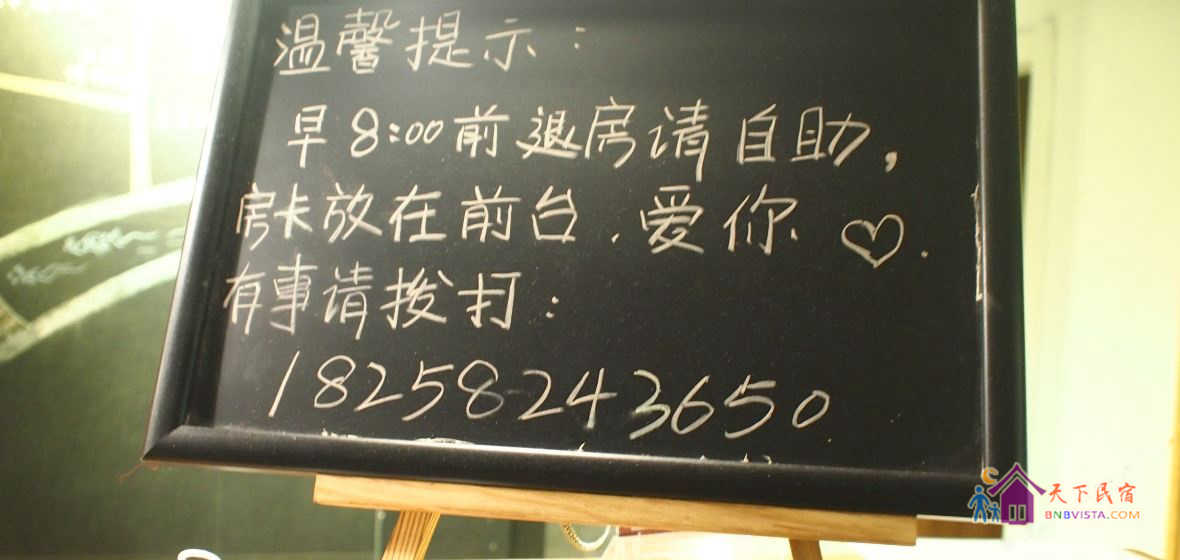 温馨提示：
早8:00前退房请自助，
房卡放在前台.爱你♡.
有事请拨打：
18258243650
天下民宿
BNBVISTA.COM